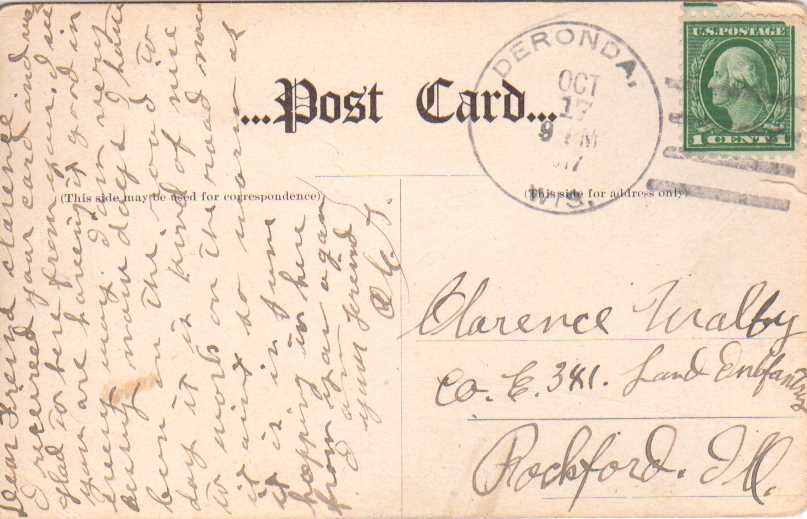 ...Post Card...
DERONDA,
OCT
17
9 M
17
WIS.
U.S. POSTAGE
1 CENT 1
(This side may be used for correspondence)
(This side for address only)
Dear Freind clarence
I received your card and was
glad to here from you. I see
you are haveing it good in
every way. I am very
busy now days I have
ben on the road to
day it is kind of nice
to work on the road now
it aint so warm as
it is in June
hopping to here
from you again
I am
your freind
Clarence Malby
Co. E. 341. Land Enfantry
Rockford. Ill.